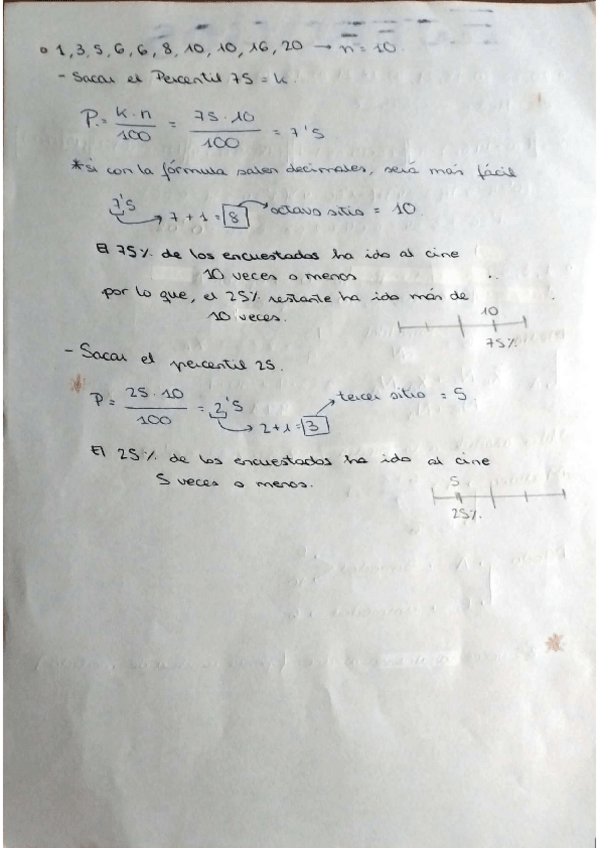 1, 3, 5, 6, 6, 8, 10, 10, 16, 20 → n = 10.
- Sacar el Percentil 75 = k.
P = k·n / 100 = 75·10 / 100 = 7'5
* si con la fórmula salen decimales, será más fácil
7'5 → 7 + 1 = 8 → octavo sitio = 10.
El 75% de los encuestados ha ido al cine
10 veces o menos
por lo que, el 25% restante ha ido más de
10 veces.
10
75%
- Sacar el percentil 25.
P = 25·10 / 100 = 2'5 → 2 + 1 = 3 → tercer sitio = 5
El 25% de los encuestados ha ido al cine
5 veces o menos.
5
25%.